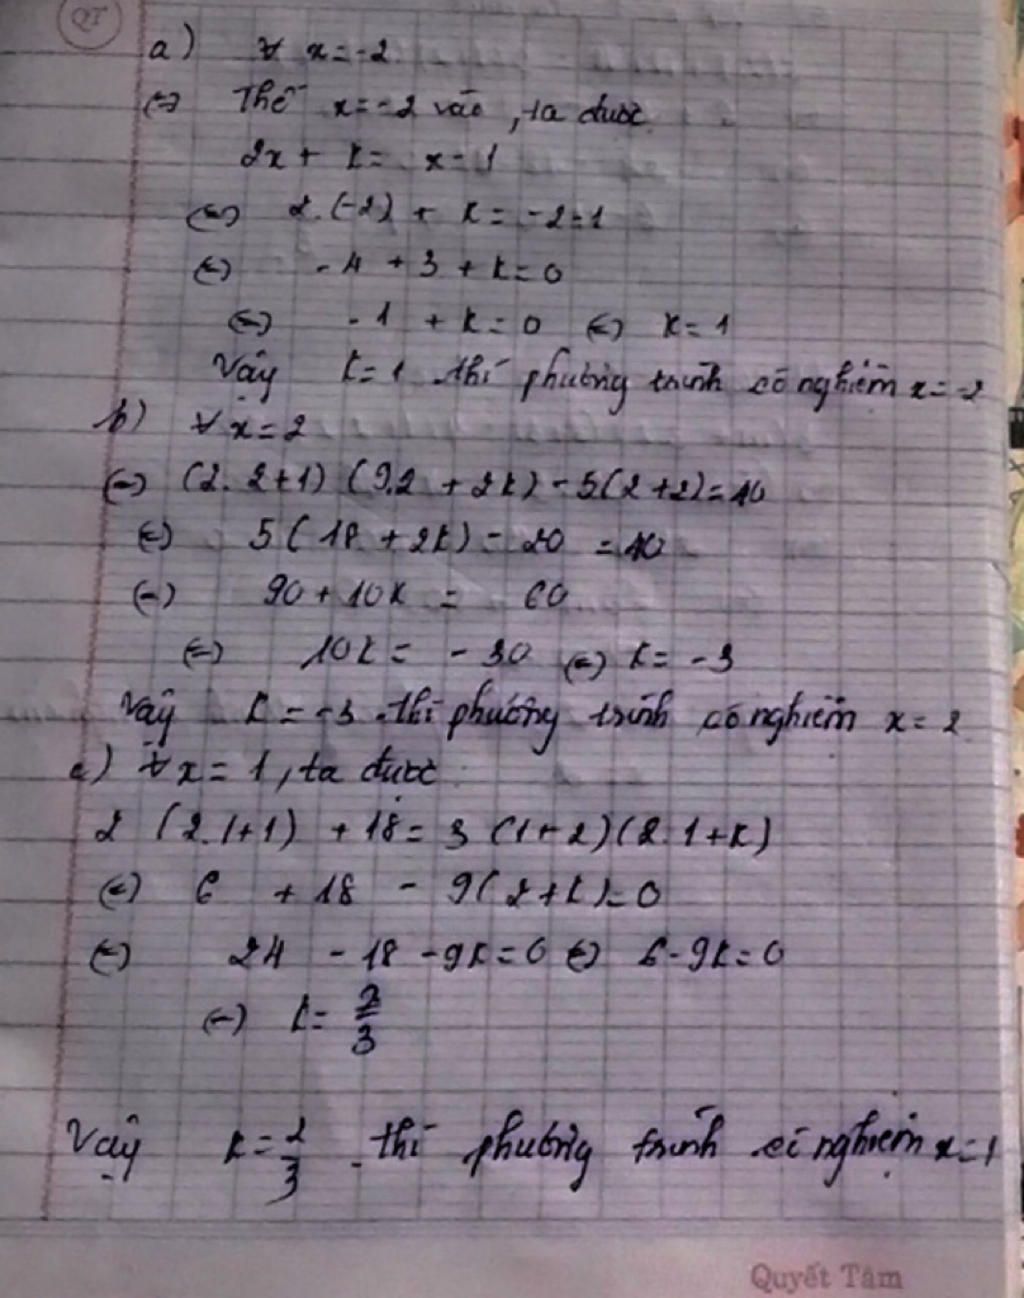 QT
a) ∀ x = -2
(=) Thế x = -2 vào, ta được
2x + k = x - 1
(=) 2.(-2) + k = -2-1
(=) -4 + 3 + k = 0
(=) -1 + k = 0 (=) k = 1
Vậy k = 1 thì phương trình có nghiệm x = -2
b) ∀ x = 2
(=) (2.2+1) (9.2 + 2k) - 5(2+2) = 40
(=) 5(18 + 2k) - 20 = 40
(=) 90 + 10k = 60
(=) 10k = -30 (=) k = -3
Vậy k = -3 thì phương trình có nghiệm x = 2
c) ∀ x = 1, ta được
2 (2.1+1) + 18 = 3 (1+2)(2.1+k)
(=) 6 + 18 - 9(2+k) = 0
(=) 24 - 18 - 9k = 0 (=) 6 - 9k = 0
(=) k = 2/3
Vậy k = 2/3 thì phương trình có nghiệm x = 1
Quyết Tâm